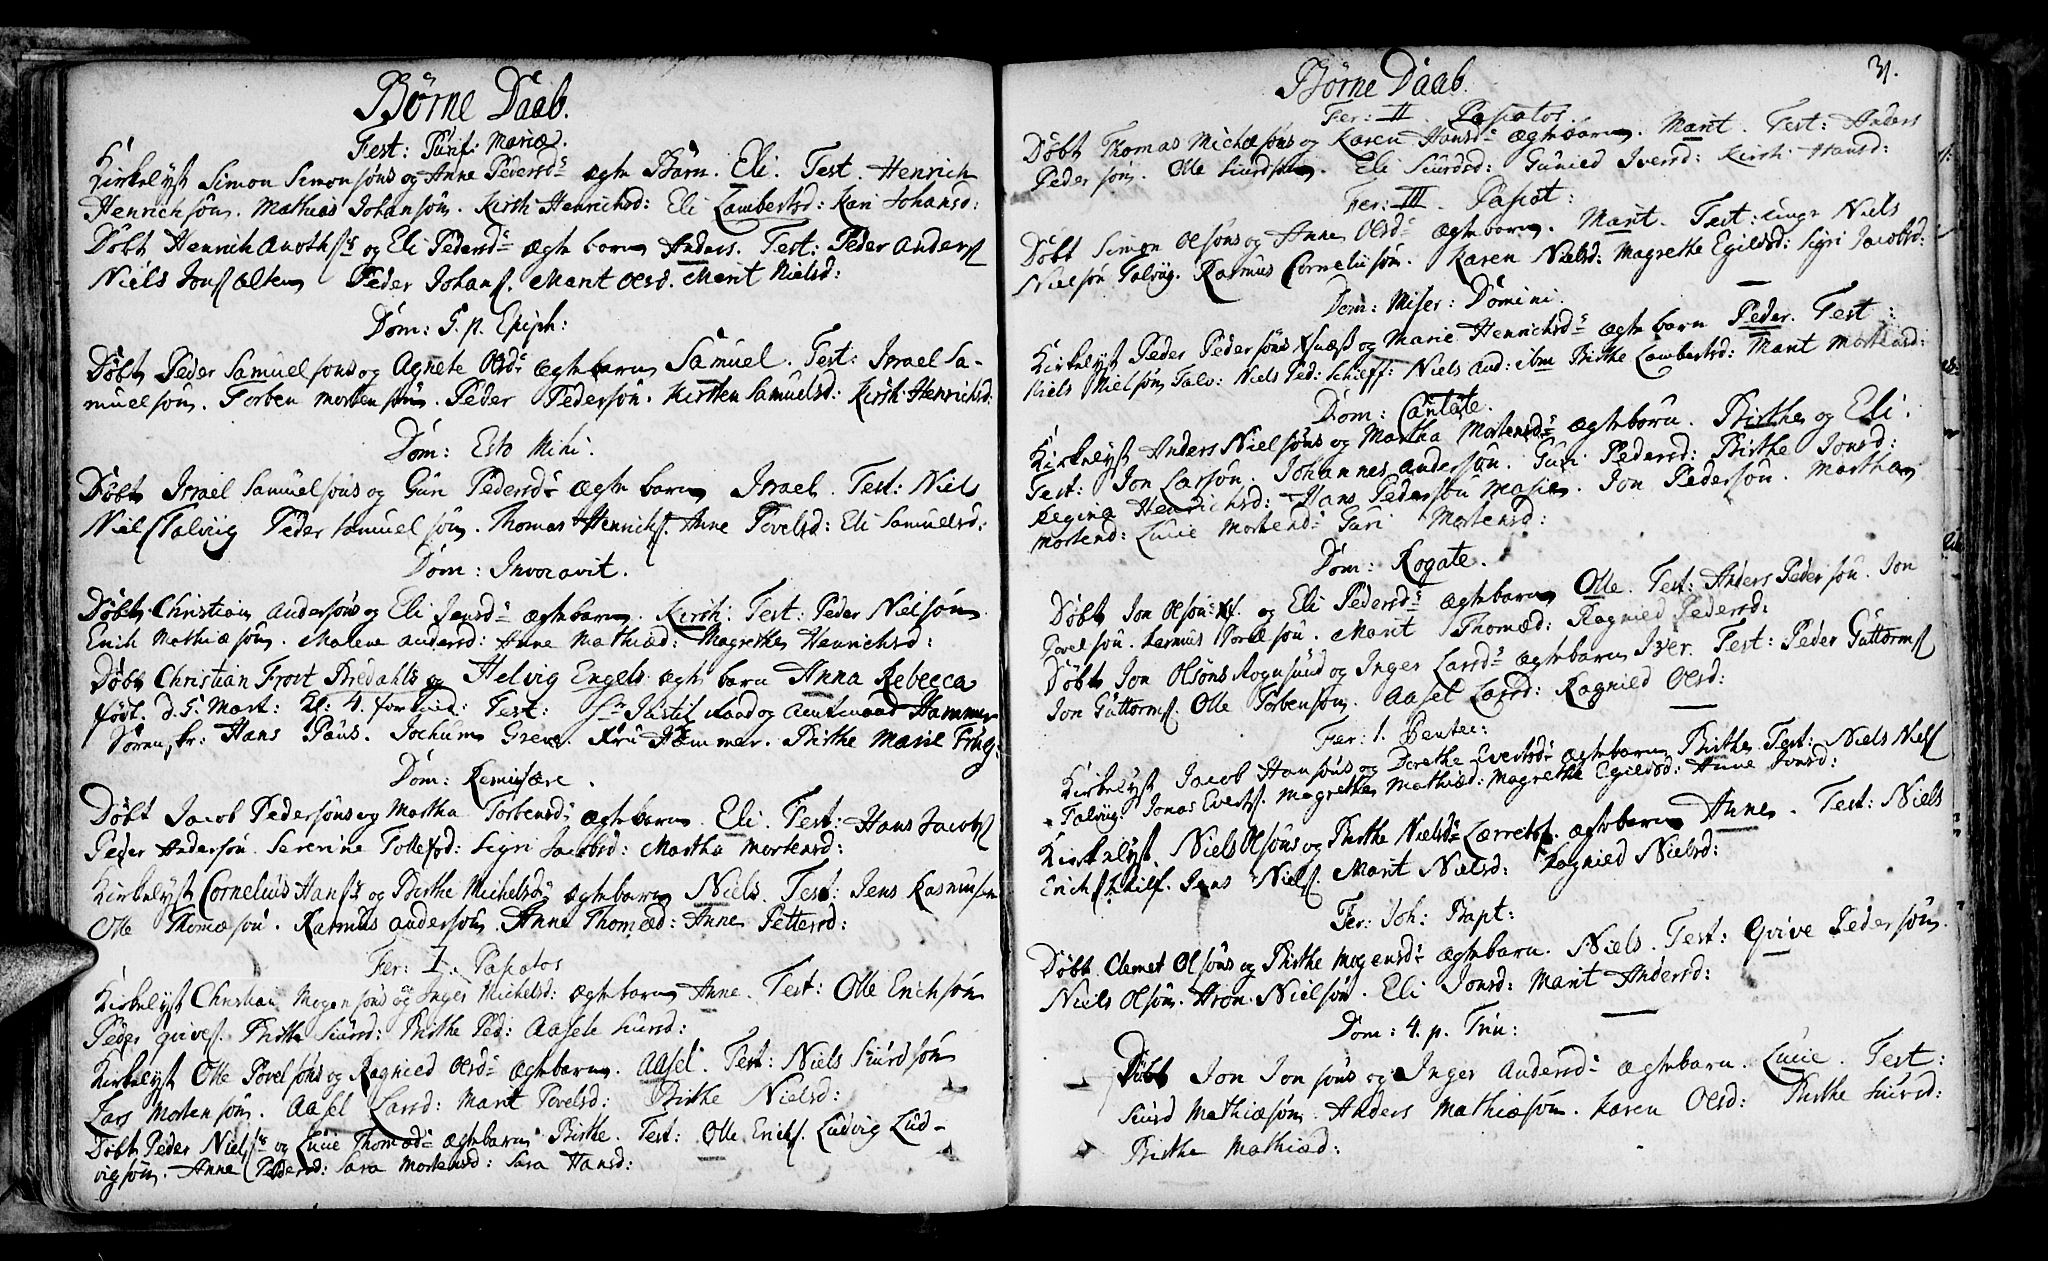 Börne Daab.
Fest: Purif: Mariæ.
Kirkelyst Simon Simonsöns og Anne Pedersd: ægte Barn. Eli. Test. Henrich
Henrichsön. Mathias Johansön. Kirsti Henrichsd: Eli Lambertsd: Kari Johansd:
Döbt Henrich og Eli Pedersd: ægte barn Anders. Test: Peder Anders
Niels Jons Alten Peder Johans. Marit Olsd. Marit Nielsd:
Dom: 5. p. Epiph:
Döbt Peder Samuelsöns og Agnete Olsd: ægte barn Samuel. Test: Israel Sa-
muelsön. Torben Mortensön. Peder Pedersön. Kirsten Samuelsd: Kirsti Henrichsd:
Dom: Esto Mihi.
Döbt Israel Samuelsöns og Guri Pedersd: ægte barn Israel. Test: Niels
Niels Talvig Peder Samuelsön. Thomas Henrichs. Anne Povelsd: Eli Samuelsd:
Dom: Invocavit.
Döbt Christian Andersöns og Eli Jensd: ægte barn. Kirsti: Test: Peder Nielsön
Erich Mathiæsön. Malene Andersd: Anne Mathiæd: Magrethe Henrichsd:
Döbt Christian Frost Bredahls og Helvig Engels ægte barn Anna Rebecca
födt. d. 5. Mart: Kl: 4. formid: Test: Hr Justitz Raad og Amtmand Hammer
Sören, hr: Hans Paus. Jochum Greve. Fru Hammer. Birthe Marie
Dom: Reminisære.
Döbt Jacob Pedersöns og Martha Torbensd: ægte barn. Eli. Test: Hans Jacobs
Peder Andersön. Serenine Tollefsd: Sigri Jacobsd: Martha Mortensd:
Kirkelyst Cornelius Hans: og Birthe Michelsd: ægte barn Niels. Test: Jens Rasmusen
Olle Thomæsön. Rasmus Andersön. Anne Thomæd: Anne Pettersd:
Fer: I. Paschatos
Kirkelyst Christian Mogensöns og Inger Michelsd: ægte barn Anne. Test: Olle Erichsön
Peder Qvives. Birthe Siursd: Birthe Ped: Aasele Siursd:
Kirkelyst Olle Povelsöns og Ragnied Olsd: ægte barn. Aasel. Test: Niels Siurdsön
Lars Mortensön. Aasel Larsd: Marit Povelsd: Birthe Nielsd:
Döbt Peder Niels: og Lucie Thomæd: ægte barn Birthe. Test: Olle Erichs. Ludvig Lud-
vigsön. Anne Pedersd: Sara Mortensd: Sara Hansd:
Börne Daab.
31.
Fer: II. Paschatos.
Döbt Thomas Michæsöns og Karen Hansd: ægte barn. Marit. Test: Anders
Pedersön. Olle Siurdsön. Eli Siurdsd: Gunied Iversd: Kirsti: Hansd:
Fer: III. Paschat:
Döbt Simon Olsöns og Anne Olsd: ægte barn. Marit. Test: unge Niels
Nielsön Talvig. Rasmus Corneliisön. Karen Nielsd: Magrethe Egilsd: Sigri Jacobsd:
Dom: Miser: Domini.
Kirkelyst Peder Pedersöns og Marie Henrichsd: ægte barn Peder. Test:
Niels Nielsön Talv: Niels Ped: Schieff: Niels And: ibm Birthe Lambertsd: Marit Mortensd:
Dom: Cantate.
Kirkelyst Anders Nielsöns og Martha Mortensd: ægte börn. Birthe og Eli.
Test: Jon Larsön. Johannes Andersön. Guri Pedersd: Birthe Jonsd:
Regina Henrichsd: Hans Pedersön Jon Pedersön. Martha
Mortend: Lucie Mortend: Guri Mortensd:
Dom: Rogate.
Döbt Jon Olsön: og Eli Pedersd: ægte barn Olle. Test: Anders Pedersön. Jon
Povelsön. Rasmus Marit Thomæd: Ragnied Pedersd:
Döbt Jon Olsöns Rognsund og Inger Larsd: ægte barn Iver. Test: Peder Guttorms
Jon Guttorms. Olle Torbensön. Aasel Larsd: Ragnied Olsd:
Fer: 1. Pentec:
Kirkelyst Jacob Hansöns og Dorethe Evertsd: ægte barn Birthe Test: Niels Niels
Talvig. Jonas Everts. Magrethe Mathiæd: Magrethe Egildsd: Anne Jonsd:
Kirkelyst. Niels Olsöns og Birthe Nielsd: ægte barn Anne. Test: Niels
Erichs Jens Niels. Marit Nielsd: Ragnied Nielsd:
Fer: Joh: Bapt:
Döbt Clemet Olsöns og Birthe Mogensd: ægte barn. Niels. Test: Qvive Pedersön.
Niels Olsön. Aron Nielsön. Eli Jonsd: Marit Andersd:
Dom: 4. p. Trin:
Döbt Jon Jonsöns og Inger Andersd: ægte barn. Lucie. Test:
Siurd Mathiæsön. Anders Mathiæsön. Karen Olsd: Birthe Siursd:
Birthe Mathiæd: